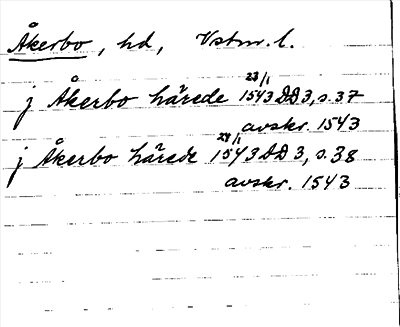 Åkerbo, hd, Vstm. l.
j Åkerbo härede 23/1 1543 DD3, s. 37
avskr. 1543
j Åkerbo härede 24/1 1543 DD 3, s. 38
avskr. 1543